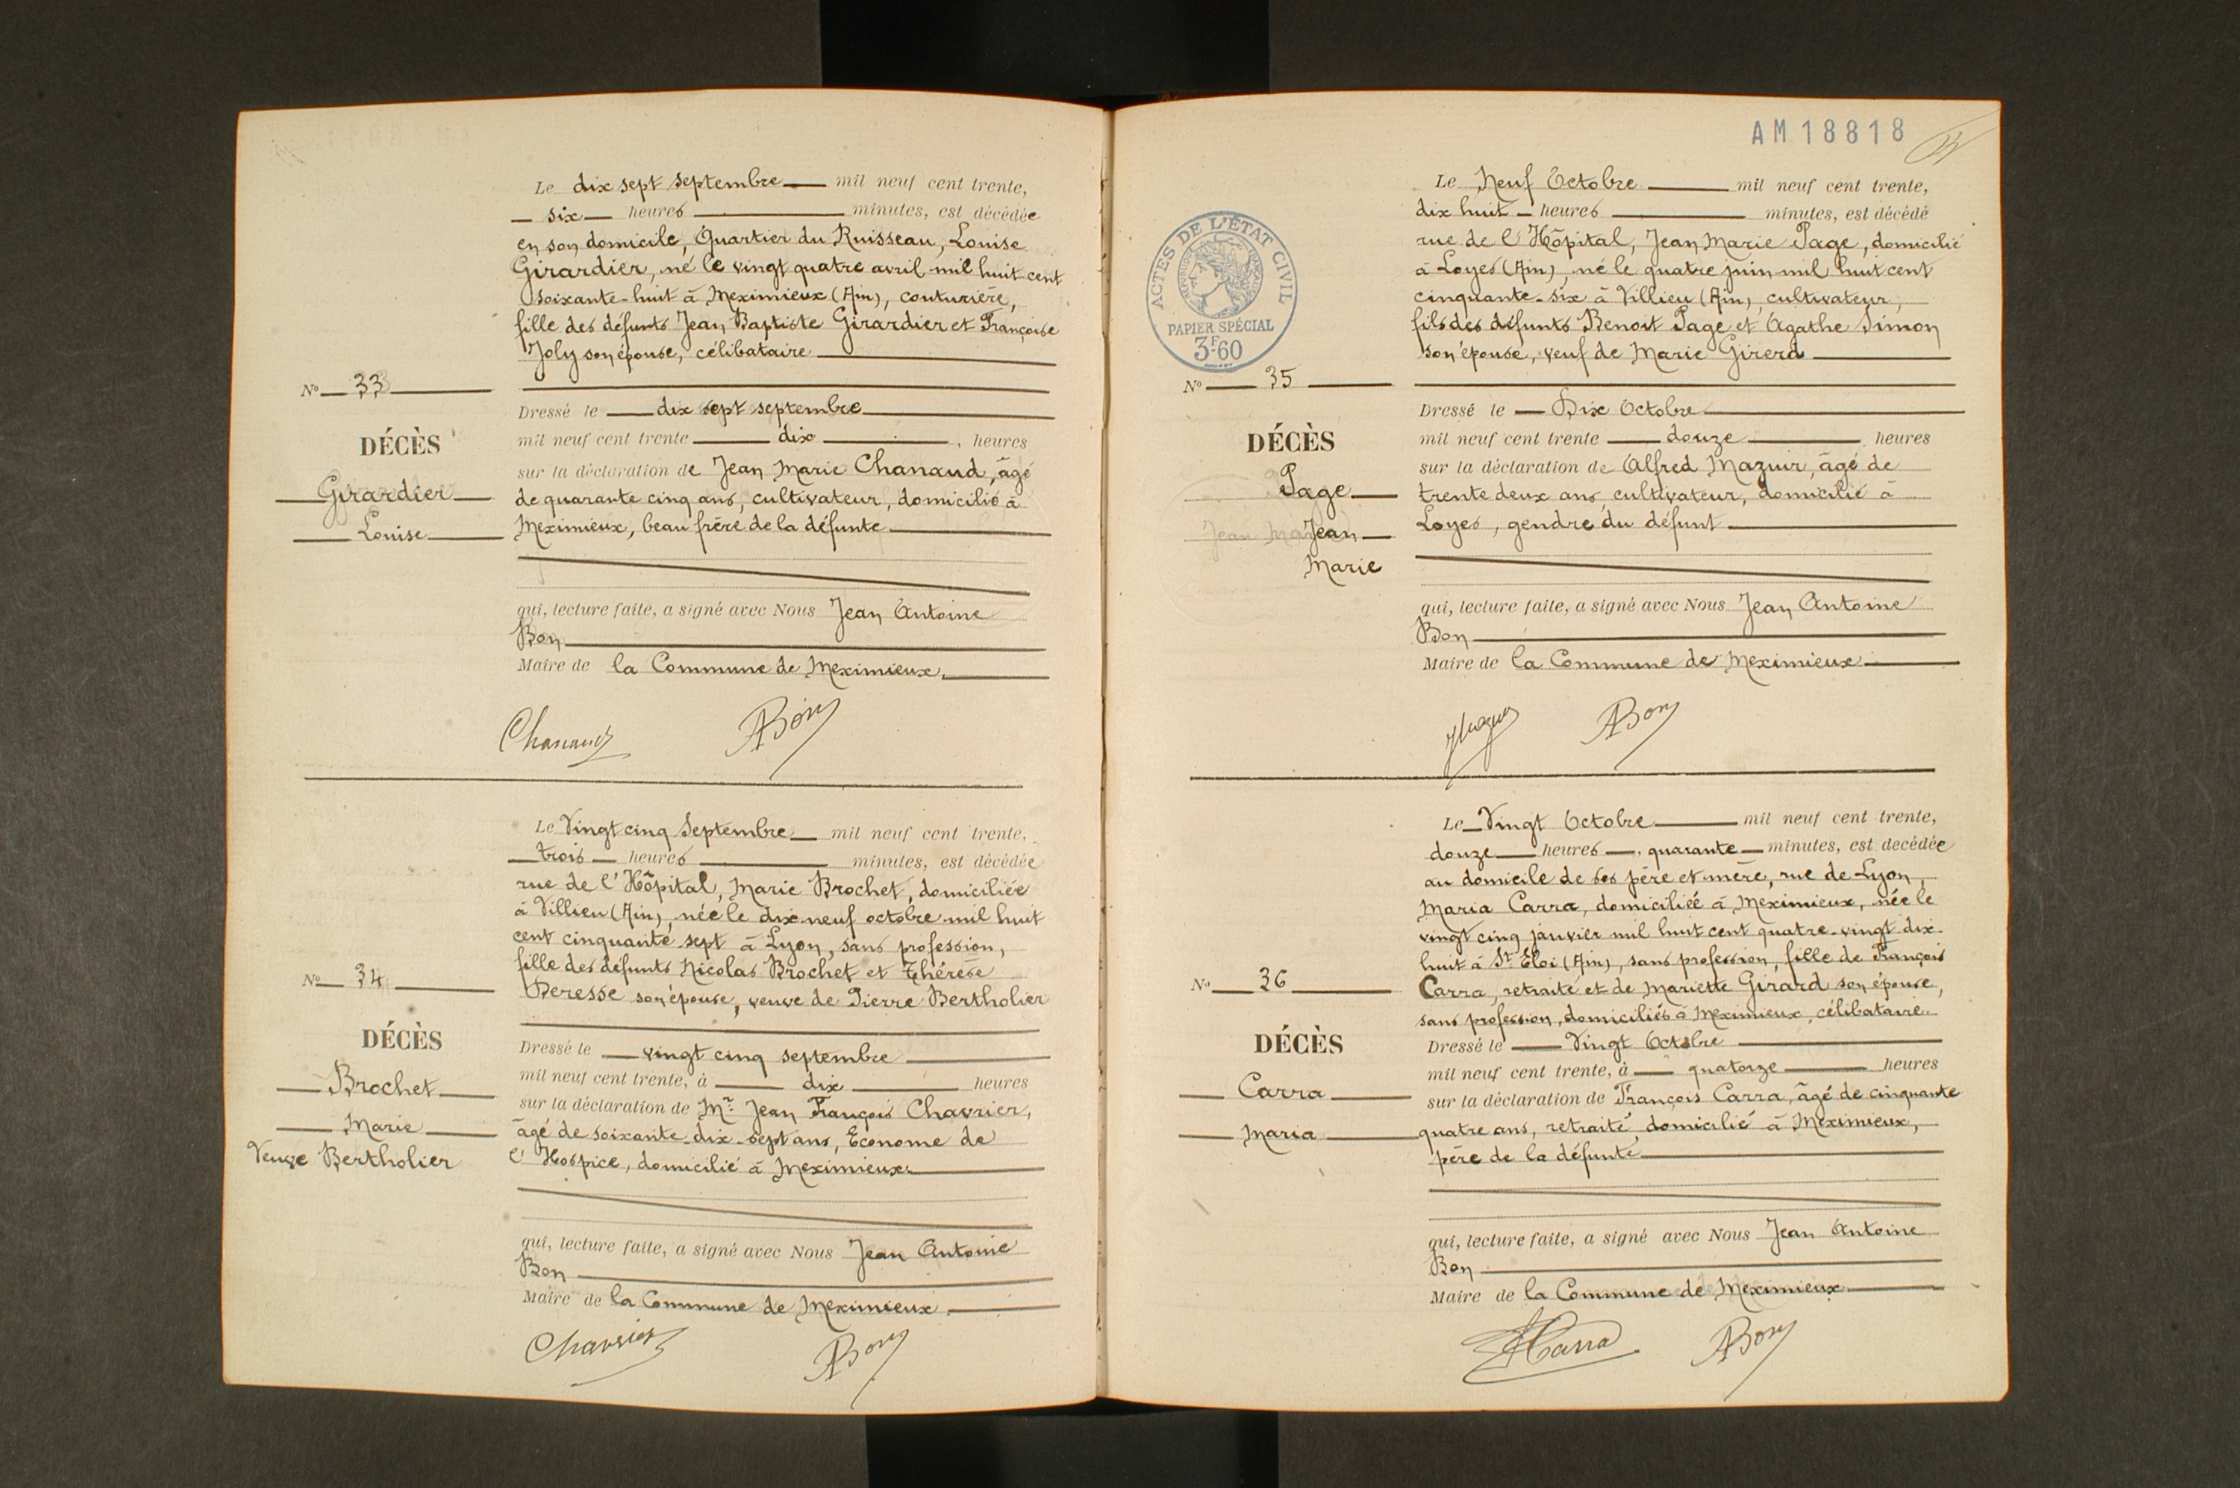 Le dix sept septembre mil neuf cent trente,
six heures minutes, est décédée
en son domicile, Quartier du Ruisseau, Louise
Girardier, né le vingt quatre avril mil huit cent
soixante-huit à Meximieux (Ain), couturière,
fille des défunts Jean Baptiste Girardier et Françoise
Joly son épouse, célibataire
No 33
DÉCÈS
Girardier
Louise
Dressé le dix sept septembre
mil neuf cent trente dix, heures
sur la déclaration de Jean Marie Chanaud, âgé
de quarante cinq ans, cultivateur, domicilié à
Meximieux, beau frère de la défunte
qui, lecture faite, a signé avec Nous Jean Antoine
Bon
Maire de la Commune de Meximieux.
Chanaud ABon
Le Vingt cinq Septembre mil neuf cent trente,
trois heures minutes, est décédée
rue de l'Hôpital, Marie Brochet, domiciliée
à Villieu (Ain), née le dix neuf octobre mil huit
cent cinquante sept à Lyon, sans profession,
fille des défunts Nicolas Brochet et Thérèse
Beresse son épouse, veuve de Pierre Bertholier
No 34
DÉCÈS
Brochet
Marie
Veuve Bertholier
Dressé le vingt cinq septembre
mil neuf cent trente, à dix heures
sur la déclaration de Mr. Jean François Chavrier,
âgé de soixante-dix-sept ans, Econome de
l'Hospice, domicilié à Meximieux.
qui, lecture faite, a signé avec Nous Jean Antoine
Bon
Maire de la Commune de Meximieux
Chavrier ABon
AM 18818
ACTES DE L'ÉTAT CIVIL
PAPIER SPÉCIAL
3F.60
Le Neuf Octobre mil neuf cent trente,
dix huit heures minutes, est décédé
rue de l'Hôpital, Jean Marie Page, domicilié
à Loyes (Ain), né le quatre juin mil huit cent
cinquante-six à Villieu (Ain), cultivateur,
fils des défunts Benoit Page et Agathe Simon
son épouse, veuf de Marie Girerd
No 35
DÉCÈS
Page
Jean
Marie
Dressé le Dix Octobre
mil neuf cent trente douze heures
sur la déclaration de Alfred Mazuir, âgé de
trente deux ans, cultivateur, domicilié à
Loyes, gendre du défunt
qui, lecture faite, a signé avec Nous Jean Antoine
Bon
Maire de la Commune de Meximieux
ABon
Le Vingt Octobre mil neuf cent trente,
douze heures, quarante minutes, est decédée
au domicile de ses père et mère, rue de Lyon,
Maria Carra, domiciliée à Meximieux, née le
vingt cinq janvier mil huit cent quatre-vingt-dix-
huit à St Eloi (Ain), sans profession, fille de François
Carra, retraité et de Mariette Girard son épouse,
sans profession, domiciliés à Meximieux, célibataire.
No 36
DÉCÈS
Carra
Maria
Dressé le Vingt Octobre
mil neuf cent trente, à quatorze heures
sur la déclaration de François Carra, âgé de cinquante
quatre ans, retraité, domicilié à Meximieux,
père de la défunte
qui, lecture faite, a signé avec Nous Jean Antoine
Bon
Maire de la Commune de Meximieux
Carra ABon